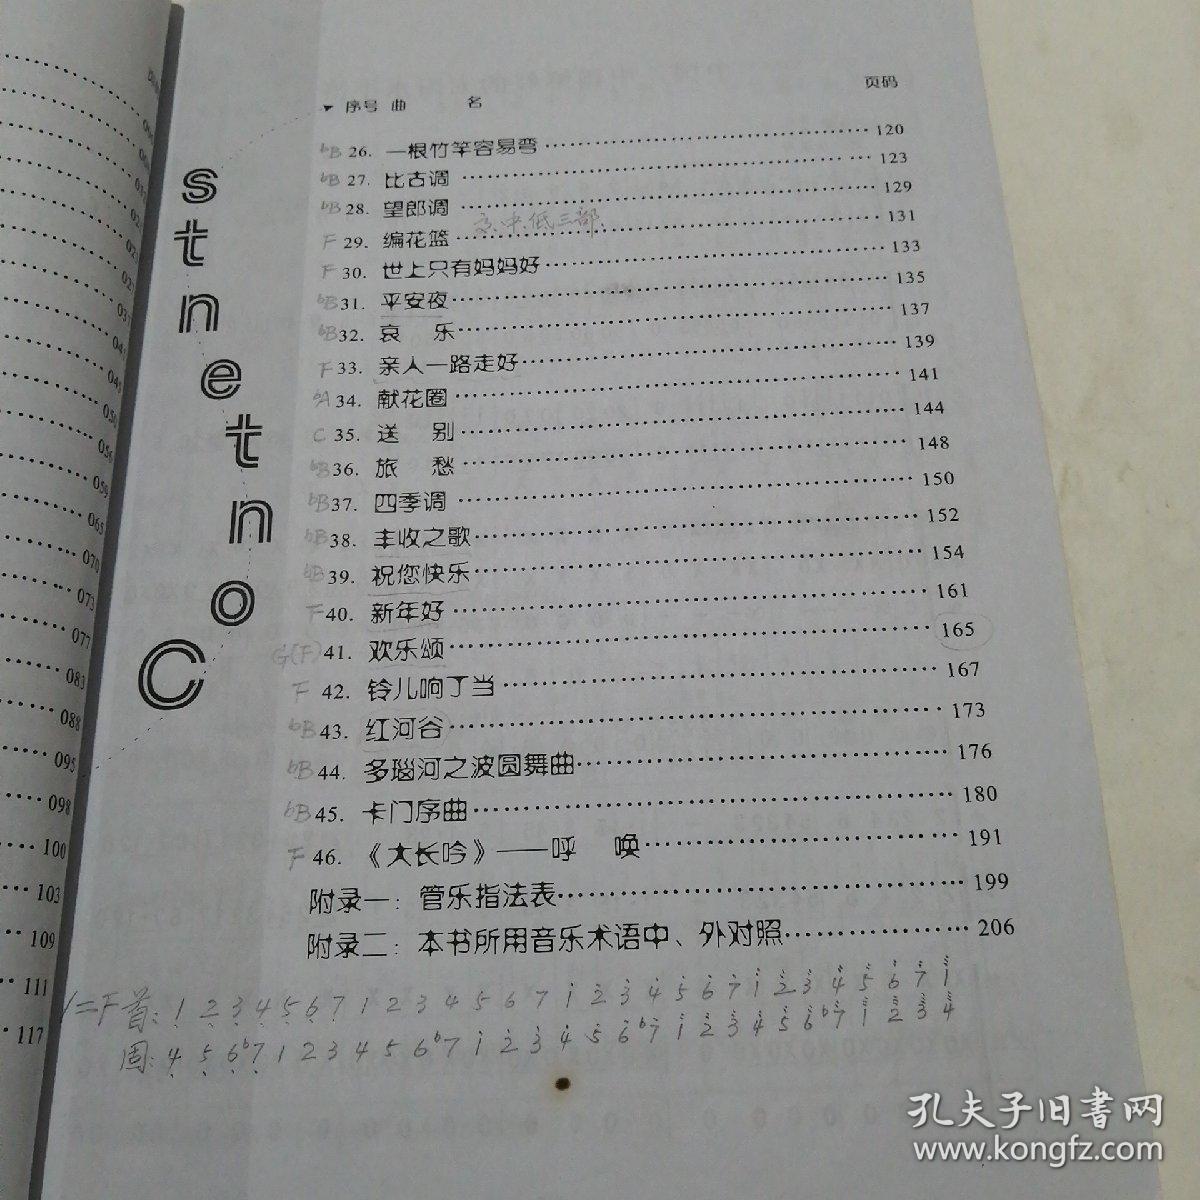 Contents
序号 曲 名 页码
bB 26. 一根竹竿容易弯 120
bB 27. 比古调 123
bB 28. 望郎调 129
高中低三部
F 29. 编花篮 131
F 30. 世上只有妈妈好 133
bB 31. 平安夜 135
bB 32. 哀 乐 137
F 33. 亲人一路走好 139
bA 34. 献花圈 141
C 35. 送 别 144
bB 36. 旅 愁 148
bB 37. 四季调 150
bB 38. 丰收之歌 152
bB 39. 祝您快乐 154
F 40. 新年好 161
G(F) 41. 欢乐颂 165
F 42. 铃儿响丁当 167
bB 43. 红河谷 173
bB 44. 多瑙河之波圆舞曲 176
bB 45. 卡门序曲 180
F 46. 《大长吟》——呼 唤 191
附录一：管乐指法表 199
附录二：本书所用音乐术语中、外对照 206
1 2 3 4 5 6 7 1 2 3 4 5 6 7 1 2 3 4 5 6 7 1 2 3 4 5 6 7 1
4 5 6 b7 1 2 3 4 5 6 b7 1 2 3 4 5 6 b7 1 2 3 4 5 6 b7 1 2 3 4
050
056
059
065
070
073
077
083
088
095
098
100
103
109
111
117
孔夫子旧书网
www.kongfz.com